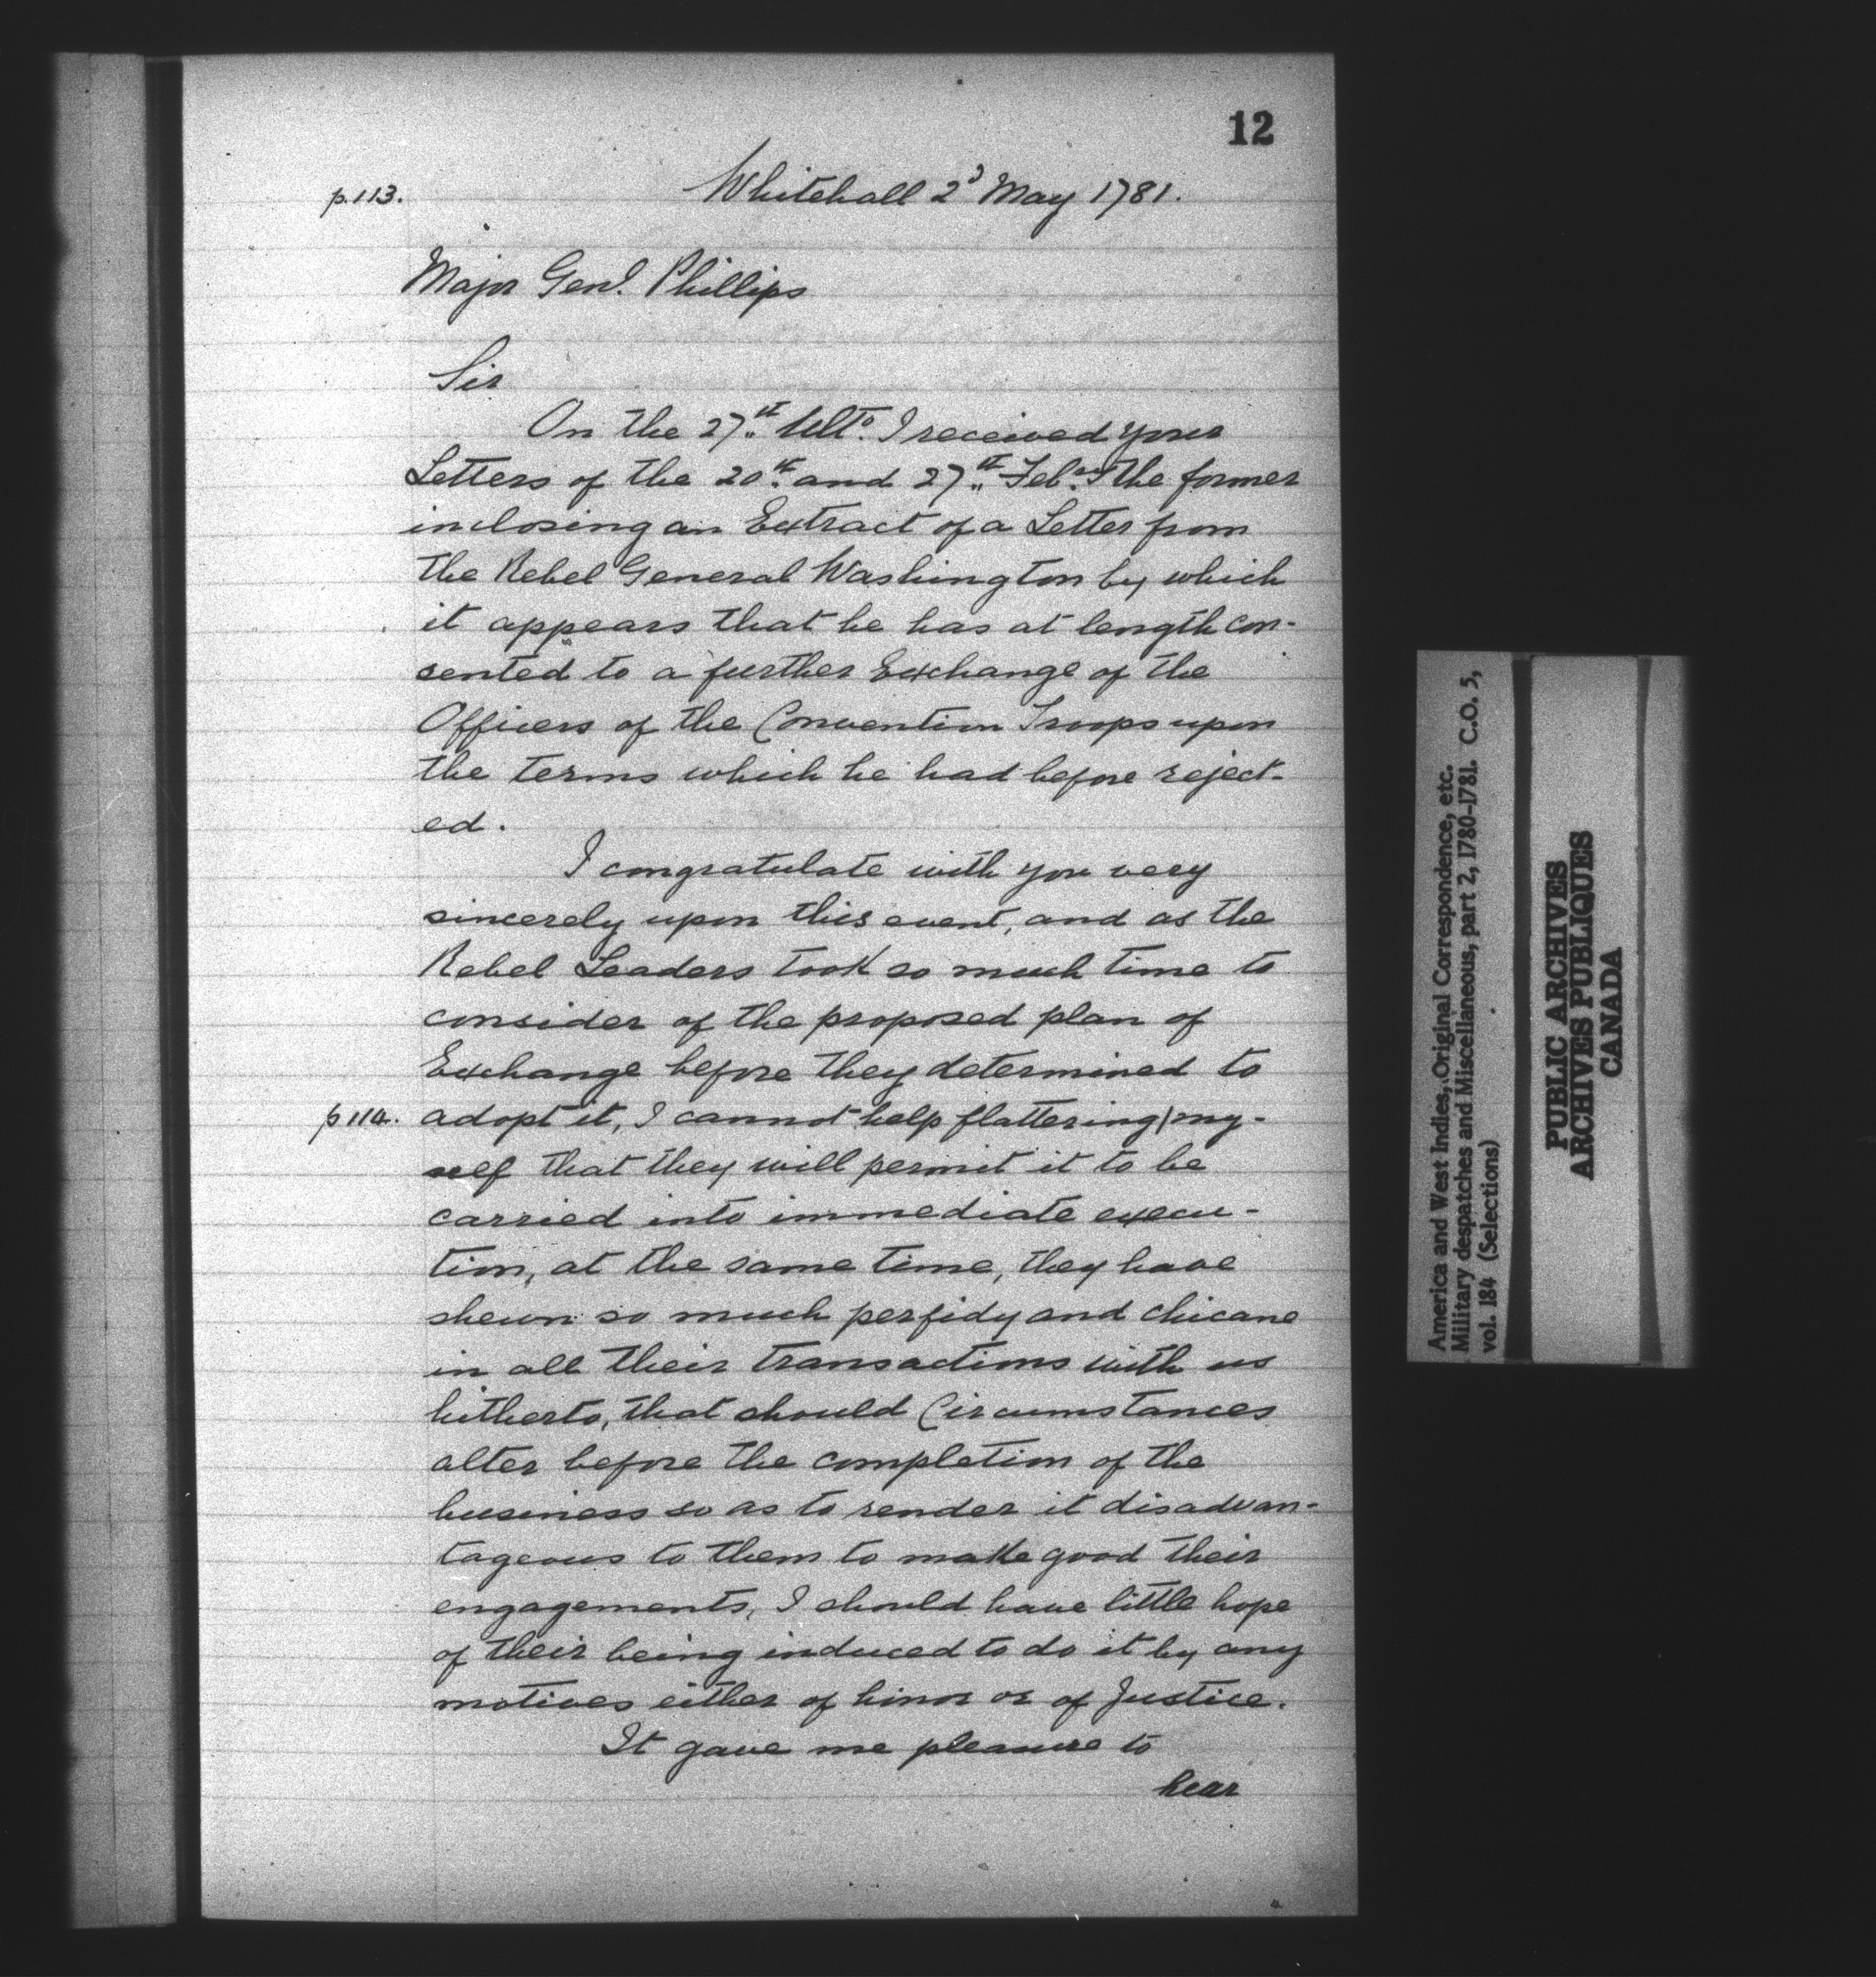 12
p.113.
Whitehall 2d May 1781.
Major Genl. Phillips
Sir
On the 27th Ulto. I received your
Letters of the 20th and 27th Febry the former
inclosing an Extract of a Letter from
the Rebel General Washington by which
it appears that he has at length con-
sented to a further Exchange of the
Officers of the Convention Troops upon
the terms which he had before reject-
ed.
I congratulate with you very
sincerely upon this event, and as the
Rebel Leaders took so much time to
consider of the proposed plan of
Exchange before they determined to
p 114. adopt it, I cannot help flattering|my-
self that they will permit it to be
carried into immediate execu-
tion, at the same time, they have
shewn so much perfidy and chicane
in all their transactions with us
hitherto, that should Circumstances
alter before the completion of the
business so as to render it disadvan-
tageous to them to make good their
engagements, I should have little hope
of their being induced to do it by any
motives either of honor or of Justice.
It gave me pleasure to
hear
America and West Indies, Original Correspondence, etc.
Military despatches and Miscellaneous, part 2, 1780-1781. C.O. 5,
vol. 184 (Selections)
PUBLIC ARCHIVES
ARCHIVES PUBLIQUES
CANADA